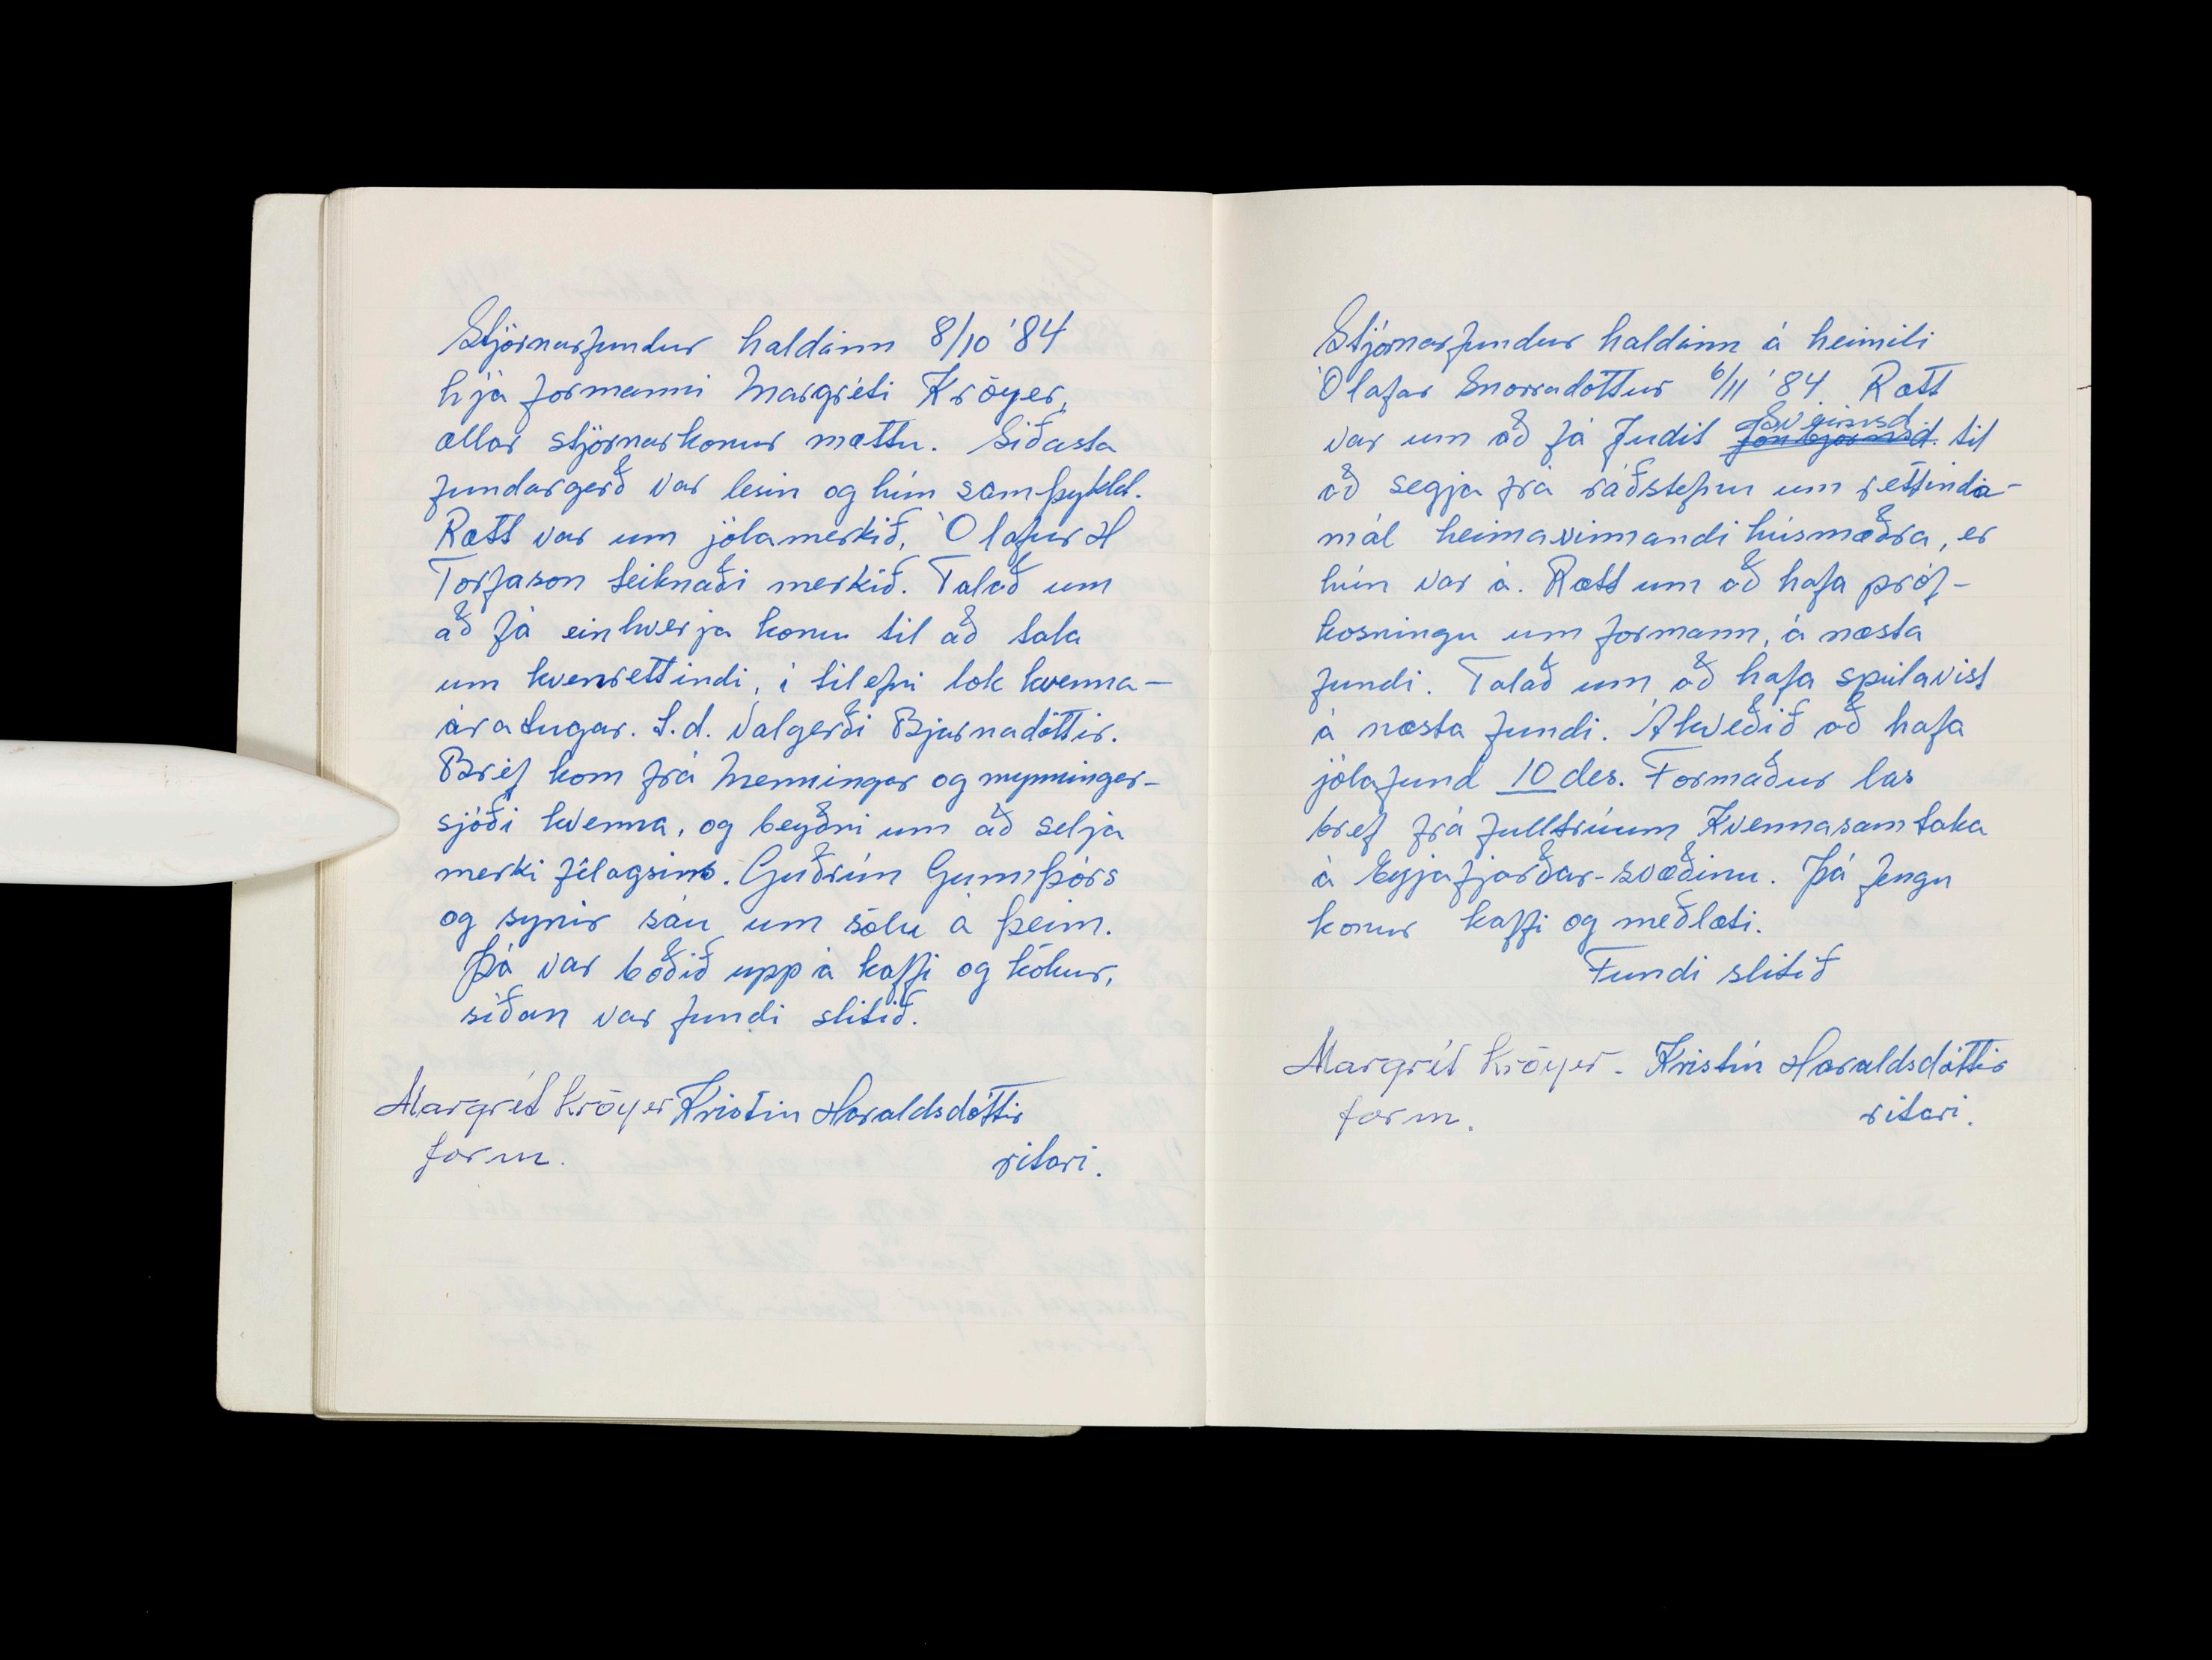 Stjórnarfundur haldinn 8/10 '84
hjá formanni Margréti Kröyer,
allar stjórnarkonur mættu. Síðasta
fundargerð var lesin og hún samþykkt.
Rætt var um jólamerkið, Ólafur H
Torfason teiknaði merkið. Talað um
að fá einhverja konu til að tala
um kvenréttindi, í tilefni lok kvenna-
áratugar. T.d. Valgerði Bjarnadóttir.
Bréf kom frá Menningar og mynningar-
sjóði kvenna, og beyðni um að selja
merki félagsins. Guðrún Gunnþórs
og synir sáu um sölu á þeim.
Þá var boðið upp á kaffi og kökur,
síðan var fundi slitið.
Margrét Kröyer Kristín Haraldsdóttir
form. ritari.
Stjórnarfundur haldinn á heimili
Ólafar Snorradóttur 6/11 '84. Rætt
var um að fá Judit Sveinsd Jónbjörnsd. til
að segja frá ráðstefnu um réttinda-
mál heimavinnandi húsmæðra, er
hún var á. Rætt um að hafa próf-
kosningu um formann, á næsta
fundi. Talað um að hafa spilavist
á næsta fundi. Ákveðið að hafa
jólafund 10 des. Formaður las
bréf frá fulltrúum Kvennasamtaka
á Eyjafjarðar-svæðinu. Þá fengu
konur kaffi og meðlæti.
Fundi slitið
Margrét Kröyer. Kristín Haraldsdóttir
form. ritari.